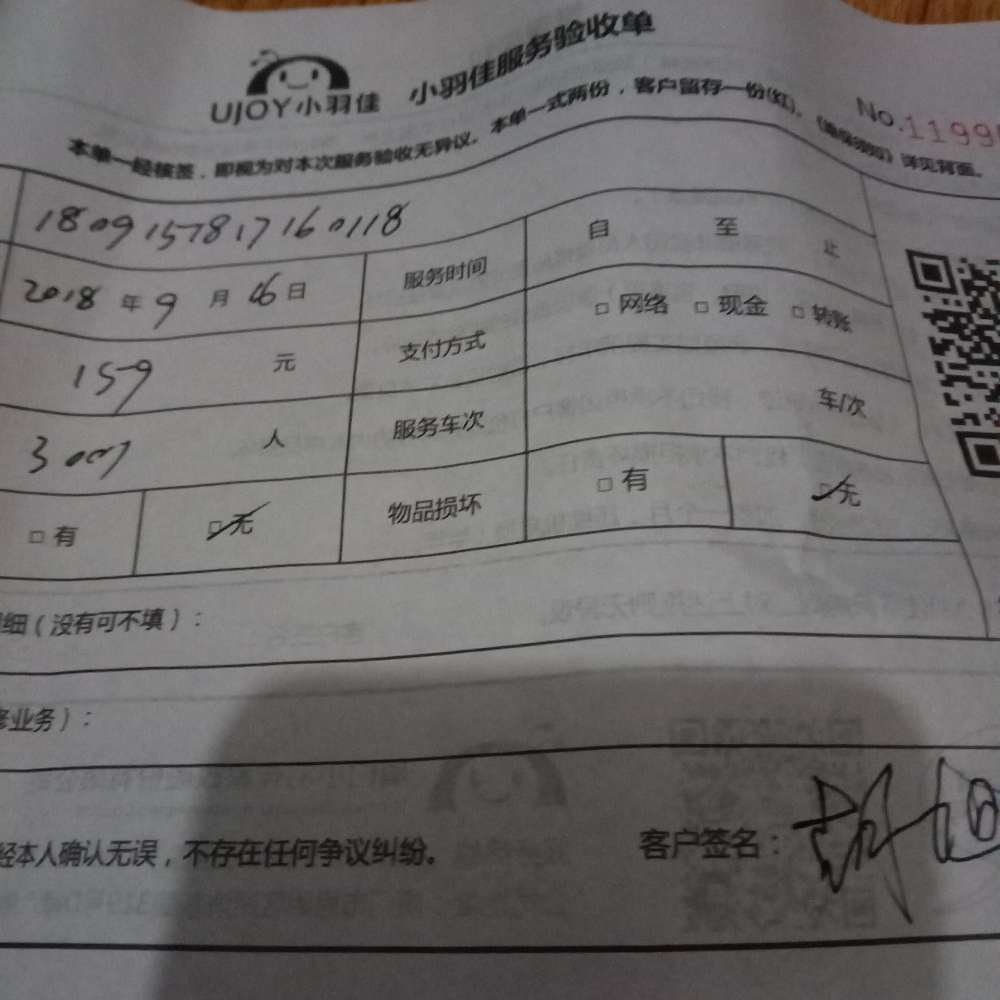 UJOY小羽佳 小羽佳服务验收单
No.1199
本单一经核签，即视为对本次服务验收无异议。本单一式两份，客户留存一份(红)。 详见背面。
1809157817160118
2018 年 9 月 16 日 服务时间 自 至 止
159 元 支付方式 □ 网络 □ 现金 □ 转账
3 人 服务车次 车/次
□ 有 □ 无 物品损坏 □ 有 □ 无
细（没有可不填）：
业务）：
经本人确认无误，不存在任何争议纠纷。 客户签名：